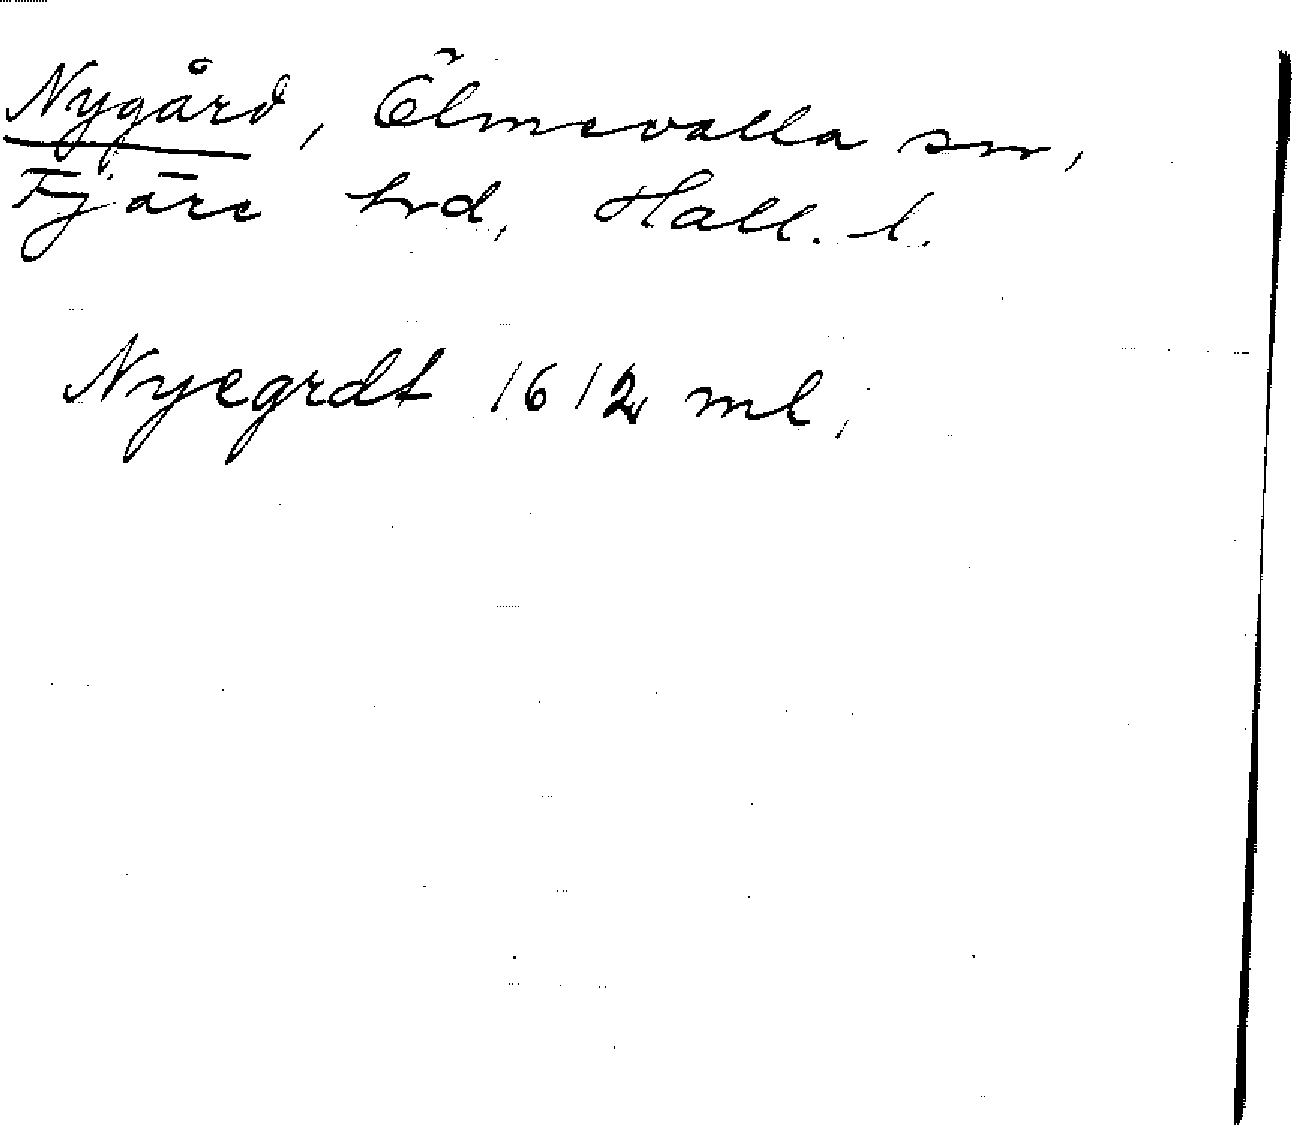 Nygård, Ölmevalla sn,
Fjäre hrd, Hall. l.
Nyegrdt 1612 ml,